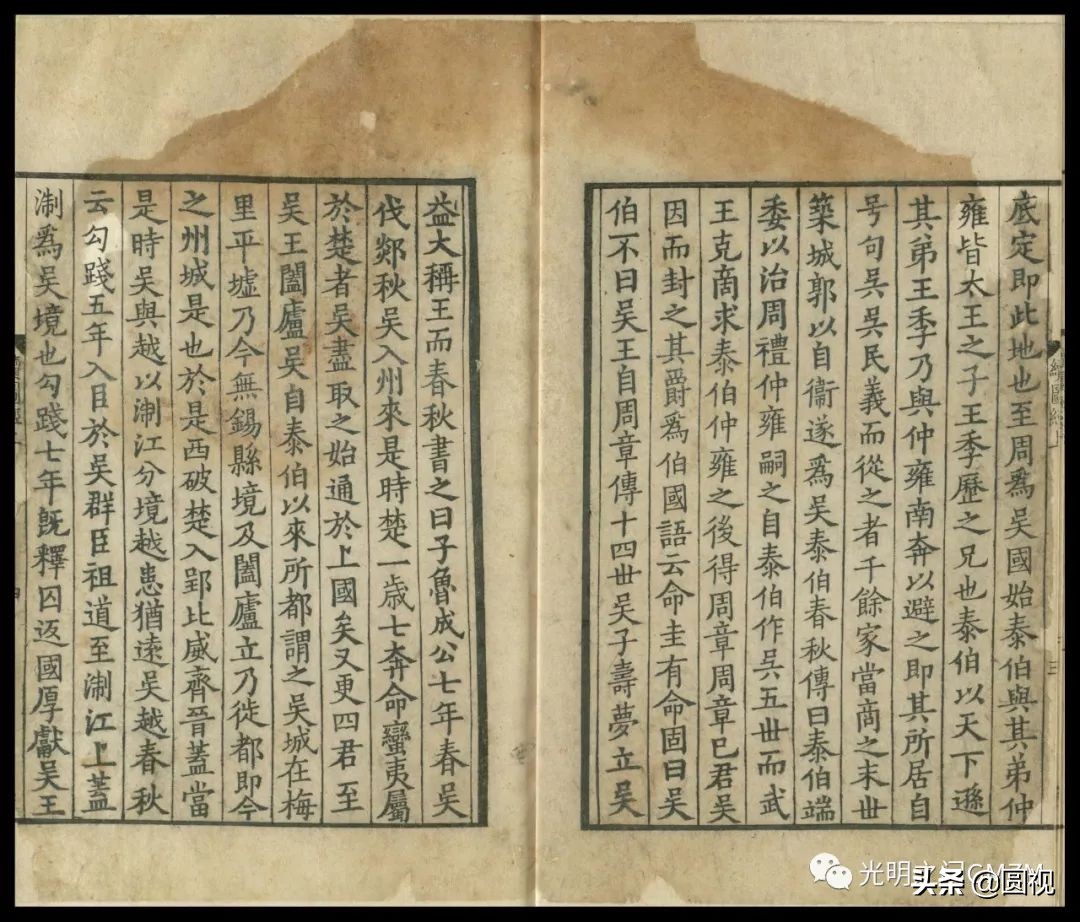 底定即此地也至周爲吳國始泰伯與其弟仲
雍皆太王之子王季歷之兄也泰伯以天下遜
其弟王季乃與仲雍南奔以避之即其所居自
号句吳吳民義而從之者千餘家當商之末世
築城郭以自衞遂爲吳泰伯春秋傳曰泰伯端
委以治周禮仲雍嗣之自泰伯作吳五世而武
王克商求泰伯仲雍之後得周章周章已君吳
因而封之其爵爲伯國語云命圭有命固曰吳
伯不曰吳王自周章傳十四世吳子壽夢立吳
益大稱王而春秋書之曰子魯成公七年春吳
伐郯秋吳入州來是時楚一歲七奔命蠻夷屬
於楚者吳盡取之始通於上國矣又更四君至
吳王闔廬吳自泰伯以來所都謂之吳城在梅
里平墟乃今無錫縣境及闔廬立乃徙都即今
之州城是也於是西破楚入郢北威齊晉蓋當
是時吳與越以淛江分境越患猶遠吳越春秋
云勾踐五年入臣於吳群臣祖道至淛江上蓋
淛爲吳境也勾踐七年旣釋囚返國厚獻吳王
續圖經
三
四
光明之门GMZM
头条 @圆视